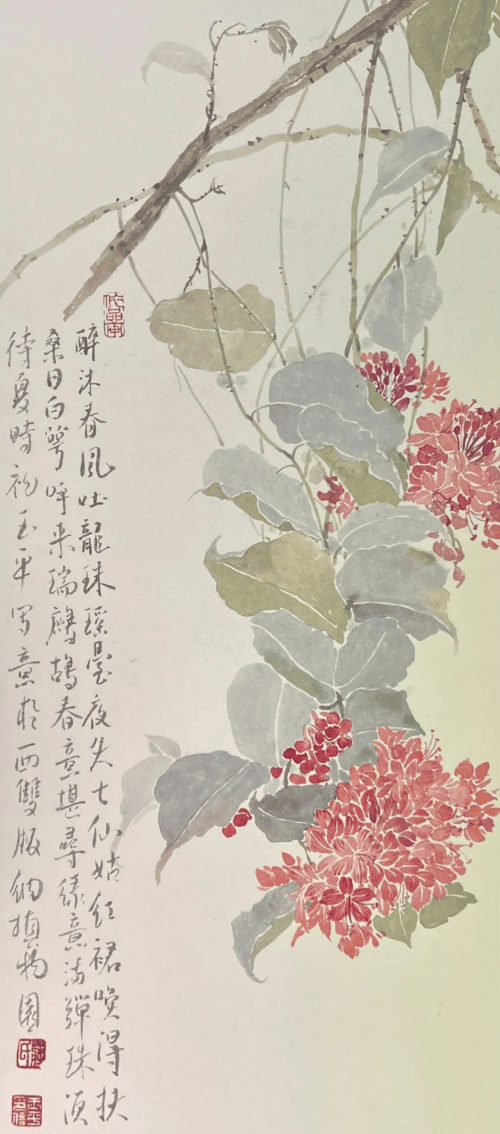 醉沐春風吐龍珠瑤臺夜失七仙姑紅裙喚得扶
桑日白萼呼来瑞鷓鴣春意堪尋緑意滿彈珠須
待夏時初玉平寫意於西雙版納植物園